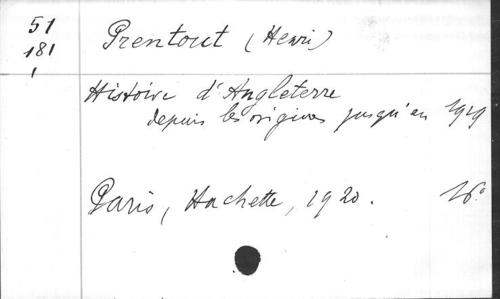 51
181
1
Prentout (Henri)
Histoire d'Angleterre
depuis les origines jusqu'en 1919
Paris, Hachette, 1920. 16°